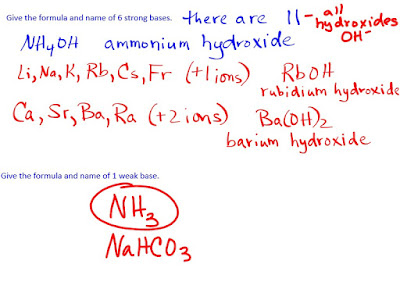 Give the formula and name of 6 strong bases. there are 11 - all hydroxides OH-
NH4OH ammonium hydroxide
Li, Na, K, Rb, Cs, Fr (+1 ions) RbOH
rubidium hydroxide
Ca, Sr, Ba, Ra (+2 ions) Ba(OH)2
barium hydroxide
Give the formula and name of 1 weak base.
NH3
NaHCO3